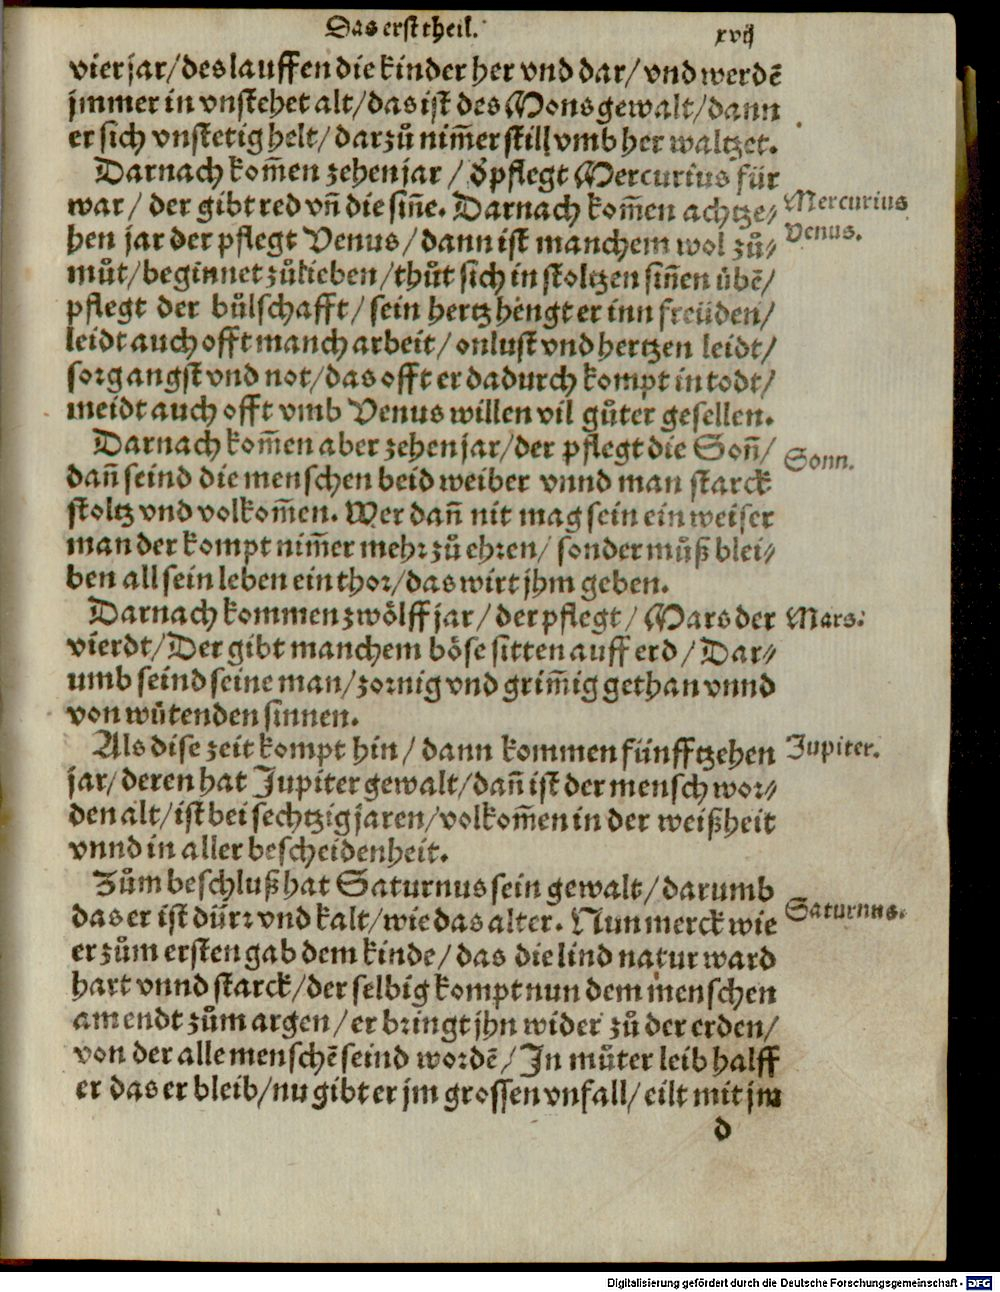 Das erst theil. xvij
vier jar/ des lauffen die kinder her vnd dar/ vnd werdē
jmmer in vnstehet alt/ das ist des Mons gewalt/ dann
er sich vnstetig helt/ darzů nim̄er still vmb her waltzet.
Darnach kom̄en zehen jar / ď pflegt Mercurius für
war/ der gibt red vn̄ die sin̄e. Darnach kom̄en achtze⸗ Mercurius
hen jar der pflegt Venus/ dann ist manchem wol zů⸗ Venus.
můt/ beginnet zů lieben/ thůt sich in stoltzen sin̄en übē/
pflegt der bůlschafft/ sein hertz hengt er inn freüden/
leidt auch offt manch arbeit/ onlust vnd hertzen leidt/
sorg angst vnd not/ das offt er dadurch kompt in todt/
meidt auch offt vmb Venus willen vil gůter gesellen.
Darnach kom̄en aber zehen jar/ der pflegt die Son̄/ Sonn.
dan̄ seind die menschen beid weiber vnnd man starck
stoltz vnd volkom̄en. Wer dan̄ nit mag sein ein weiser
man der kompt nim̄er mehr zů ehren/ sonder můß blei⸗
ben all sein leben ein thor/ das wirt jhm geben.
Darnach kommen zwölff jar/ der pflegt/ Mars der Mars.
vierdt/ Der gibt manchem böse sitten auff erd/ Dar⸗
umb seind seine man/ zornig vnd grim̄ig gethan vnnd
von wütenden sinnen.
Als dise zeit kompt hin/ dann kommen fünfftzehen Jupiter.
jar/ deren hat Jupiter gewalt/ dan̄ ist der mensch wor⸗
den alt/ ist bei sechtzig jaren/ volkom̄en in der weißheit
vnnd in aller bescheidenheit.
Zům beschluß hat Saturnus sein gewalt/ darumb
das er ist dürr vnd kalt/ wie das alter. Nun merck wie Saturnus.
er zům ersten gab dem kinde/ das die lind natur ward
hart vnnd starck/ der selbig kompt nun dem menschen
am endt zům argen/ er bringt jhn wider zů der erden/
von der alle menschē seind wordē/ In můter leib halff
er das er bleib/ nu gibt er jm grossen vnfall/ eilt mit jm
d
Digitalisierung gefördert durch die Deutsche Forschungsgemeinschaft - DFG